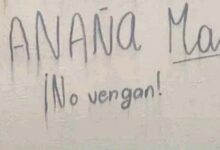 ANAÑA Ma
¡No vengan!